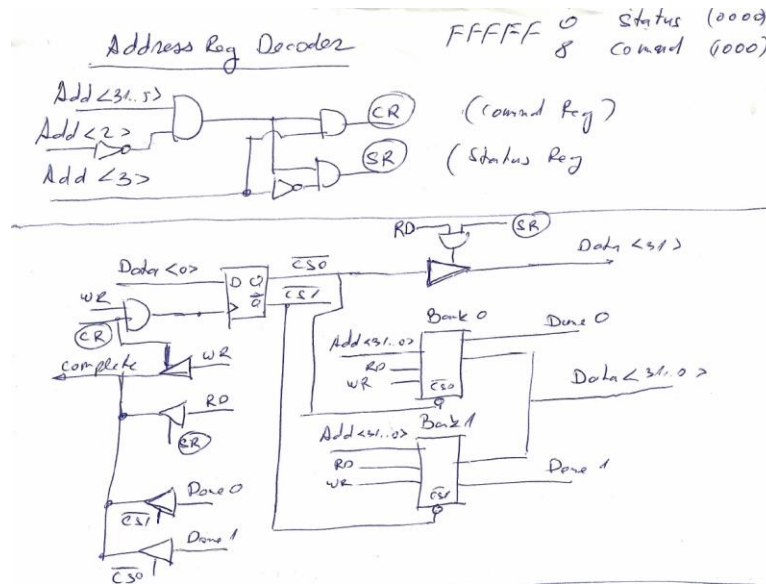 Address Reg Decoder
FFFFF 0 Status (0000)
8 Comand (1000)
Add <31..5>
Add <2>
Add <3>
CR (Comand Reg)
SR (Status Reg
RD SR
Data <31>
Data <0> D Q CS0
Q CS1
WR
CR
complete WR
RD
SR
Done 0
CS1
Done 1
CS0
Bank 0
Add <31..0>
RD
WR
CS0
Done 0
Data <31..0>
Bank 1
Add <31..0>
RD
WR
CS1
Done 1